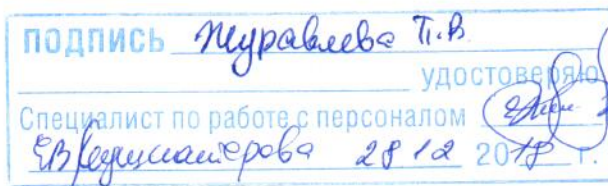 ПОДПИСЬ Журавлева П.В.
УДОСТОВЕРЯЮ
Специалист по работе с персоналом
Е.В. 28 12 2018 г.